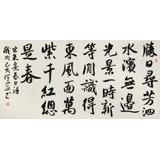 勝日尋芳泗
水濱無邊
光景一時新
等閒識得
東風面萬
紫千紅總
是春